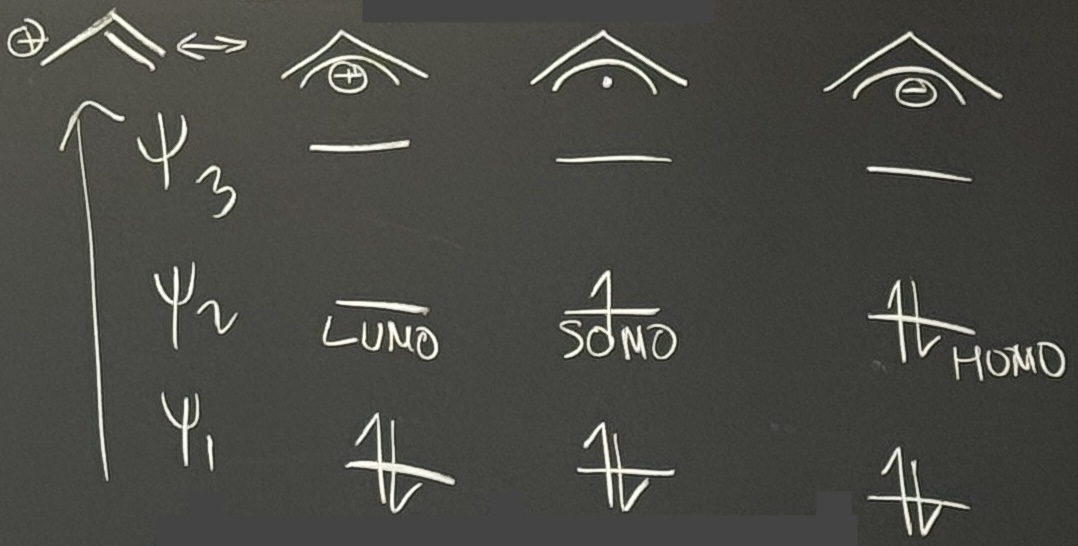 ⊕ ↔ ⊕ · ⊖
ψ3
ψ2 LUMO SOMO HOMO
ψ1